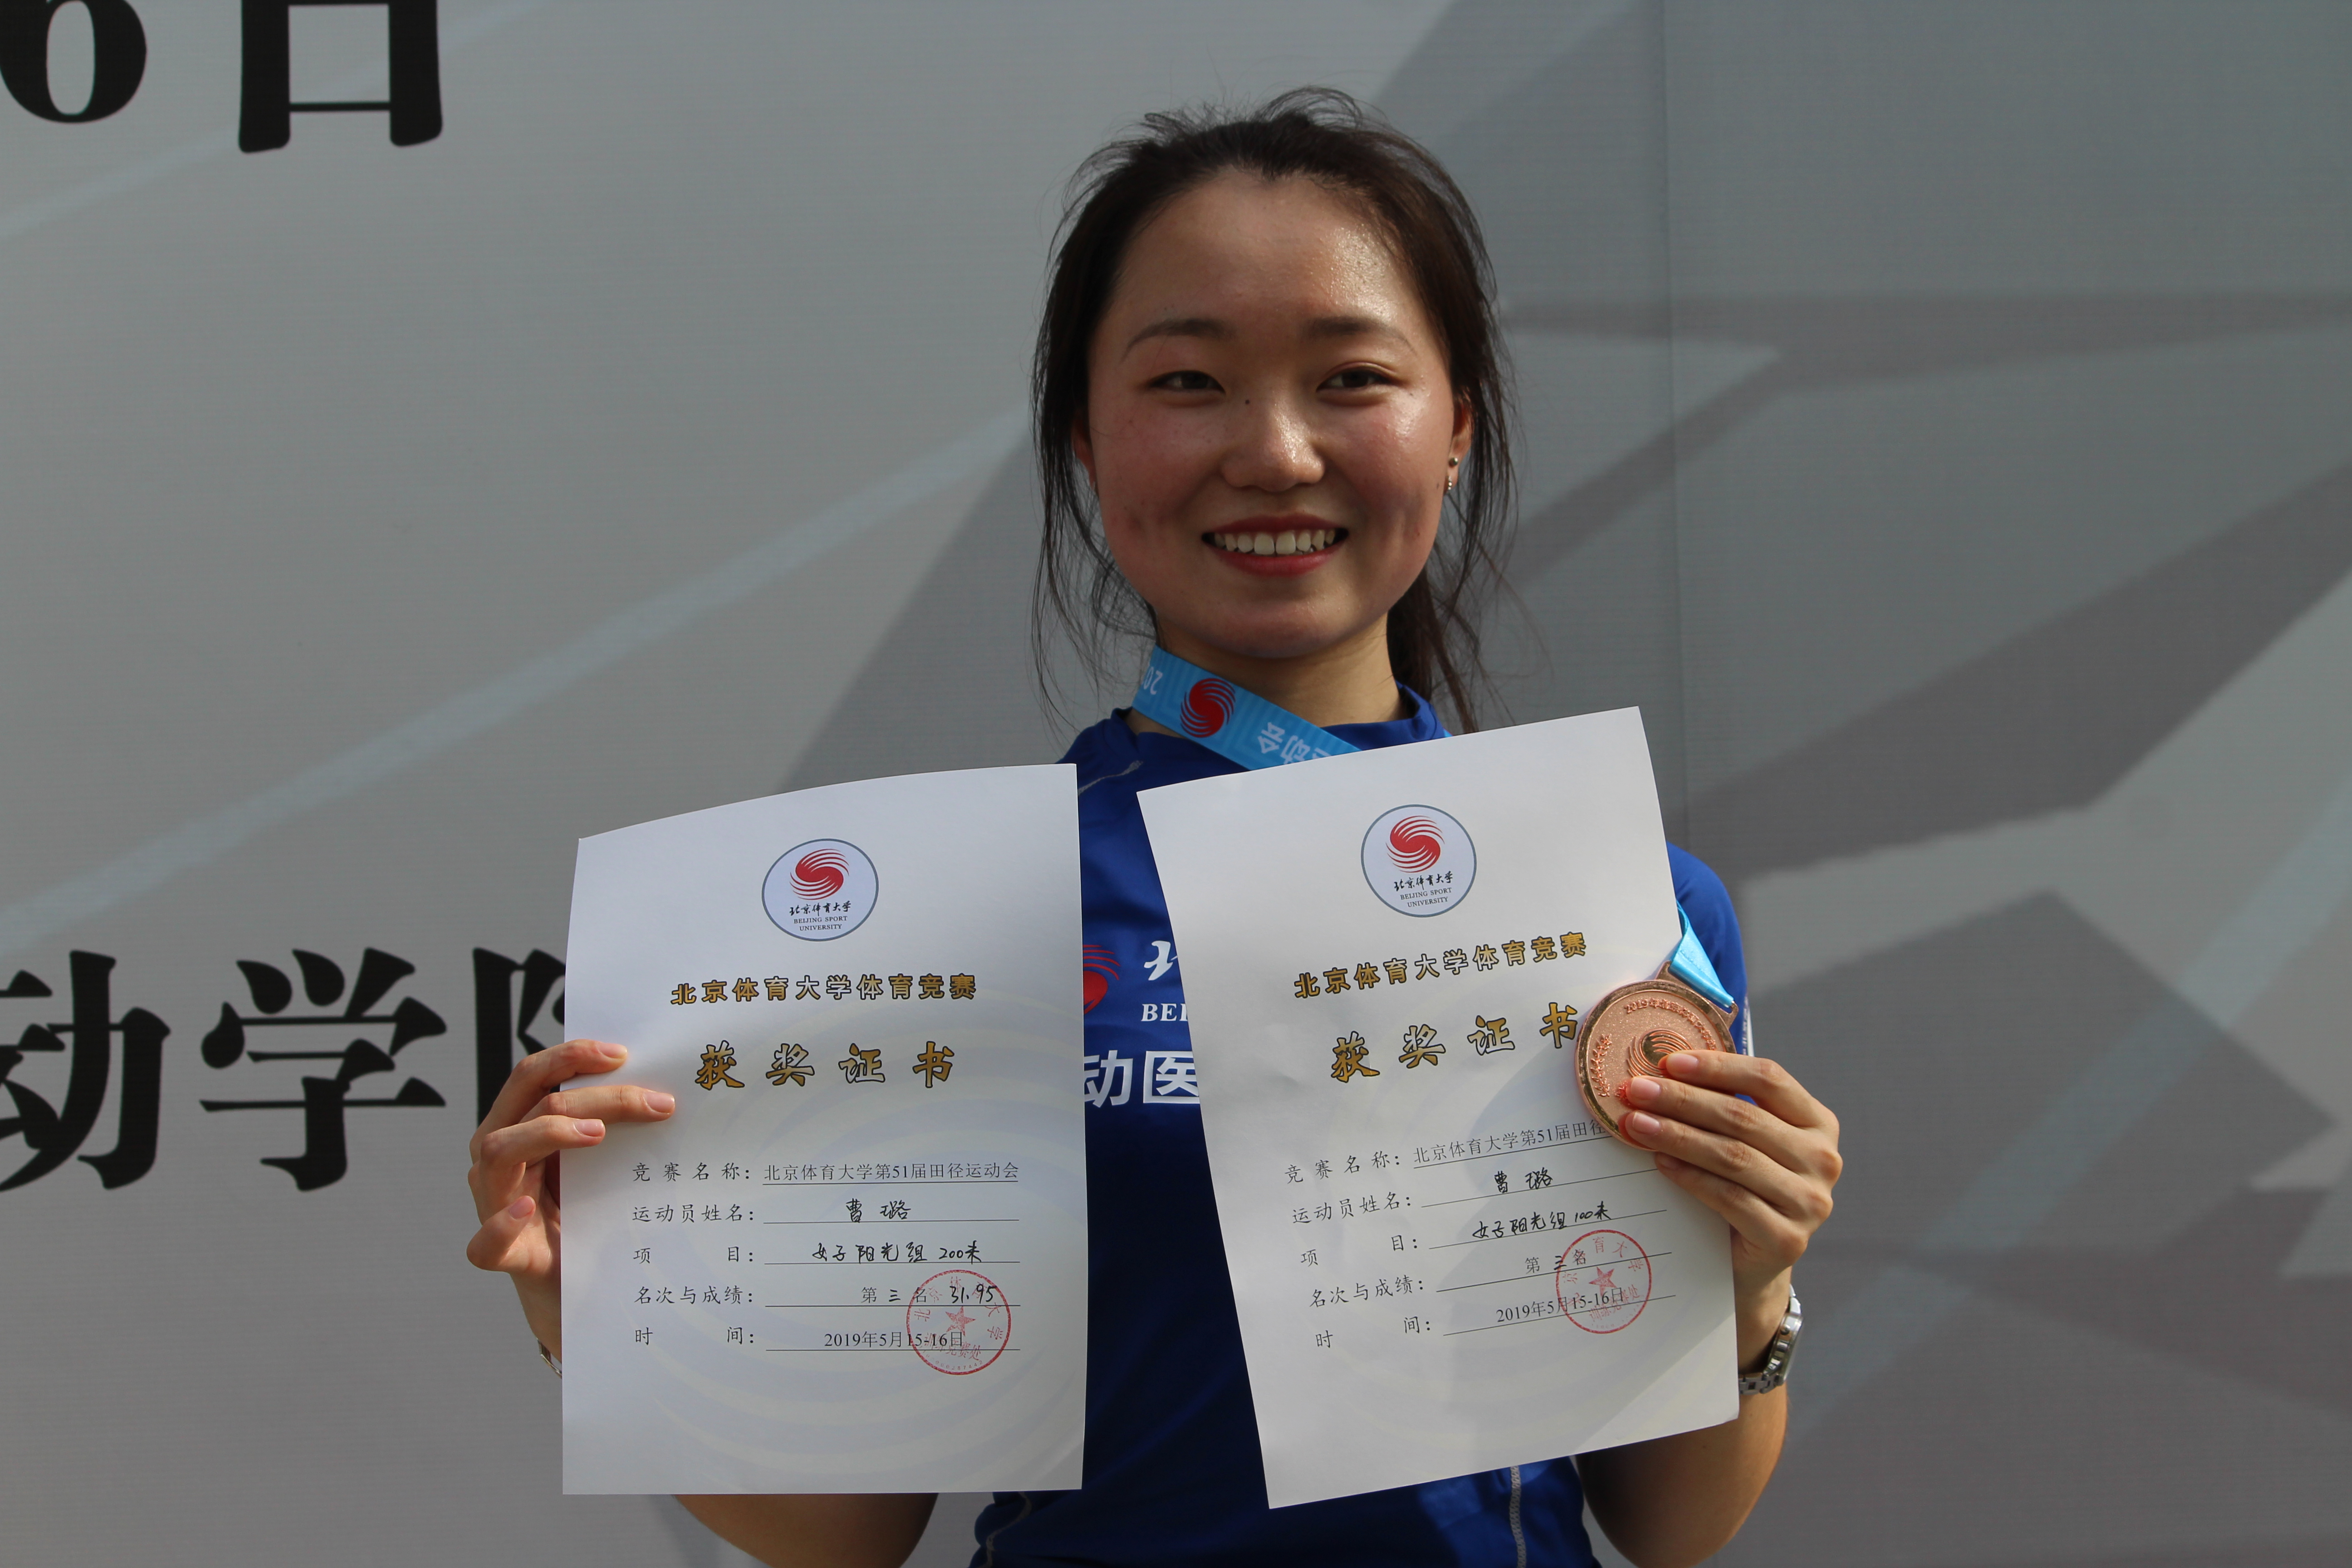 6日
动学
北京体育大学
BEIJING SPORT
UNIVERSITY
北京体育大学体育竞赛
获奖证书
竞赛名称：北京体育大学第51届田径运动会
运动员姓名：曹璐
项目：女子阳光组 200米
名次与成绩：第三名 31.95
时间：2019年5月15-16日
动会
北京体育大学
BEIJING SPORT
UNIVERSITY
北京体育大学体育竞赛
获奖证书
竞赛名称：北京体育大学第51届田径
运动员姓名：曹璐
项目：女子阳光组 100米
名次与成绩：第三名
时间：2019年5月15-16日
北
BEI
动医